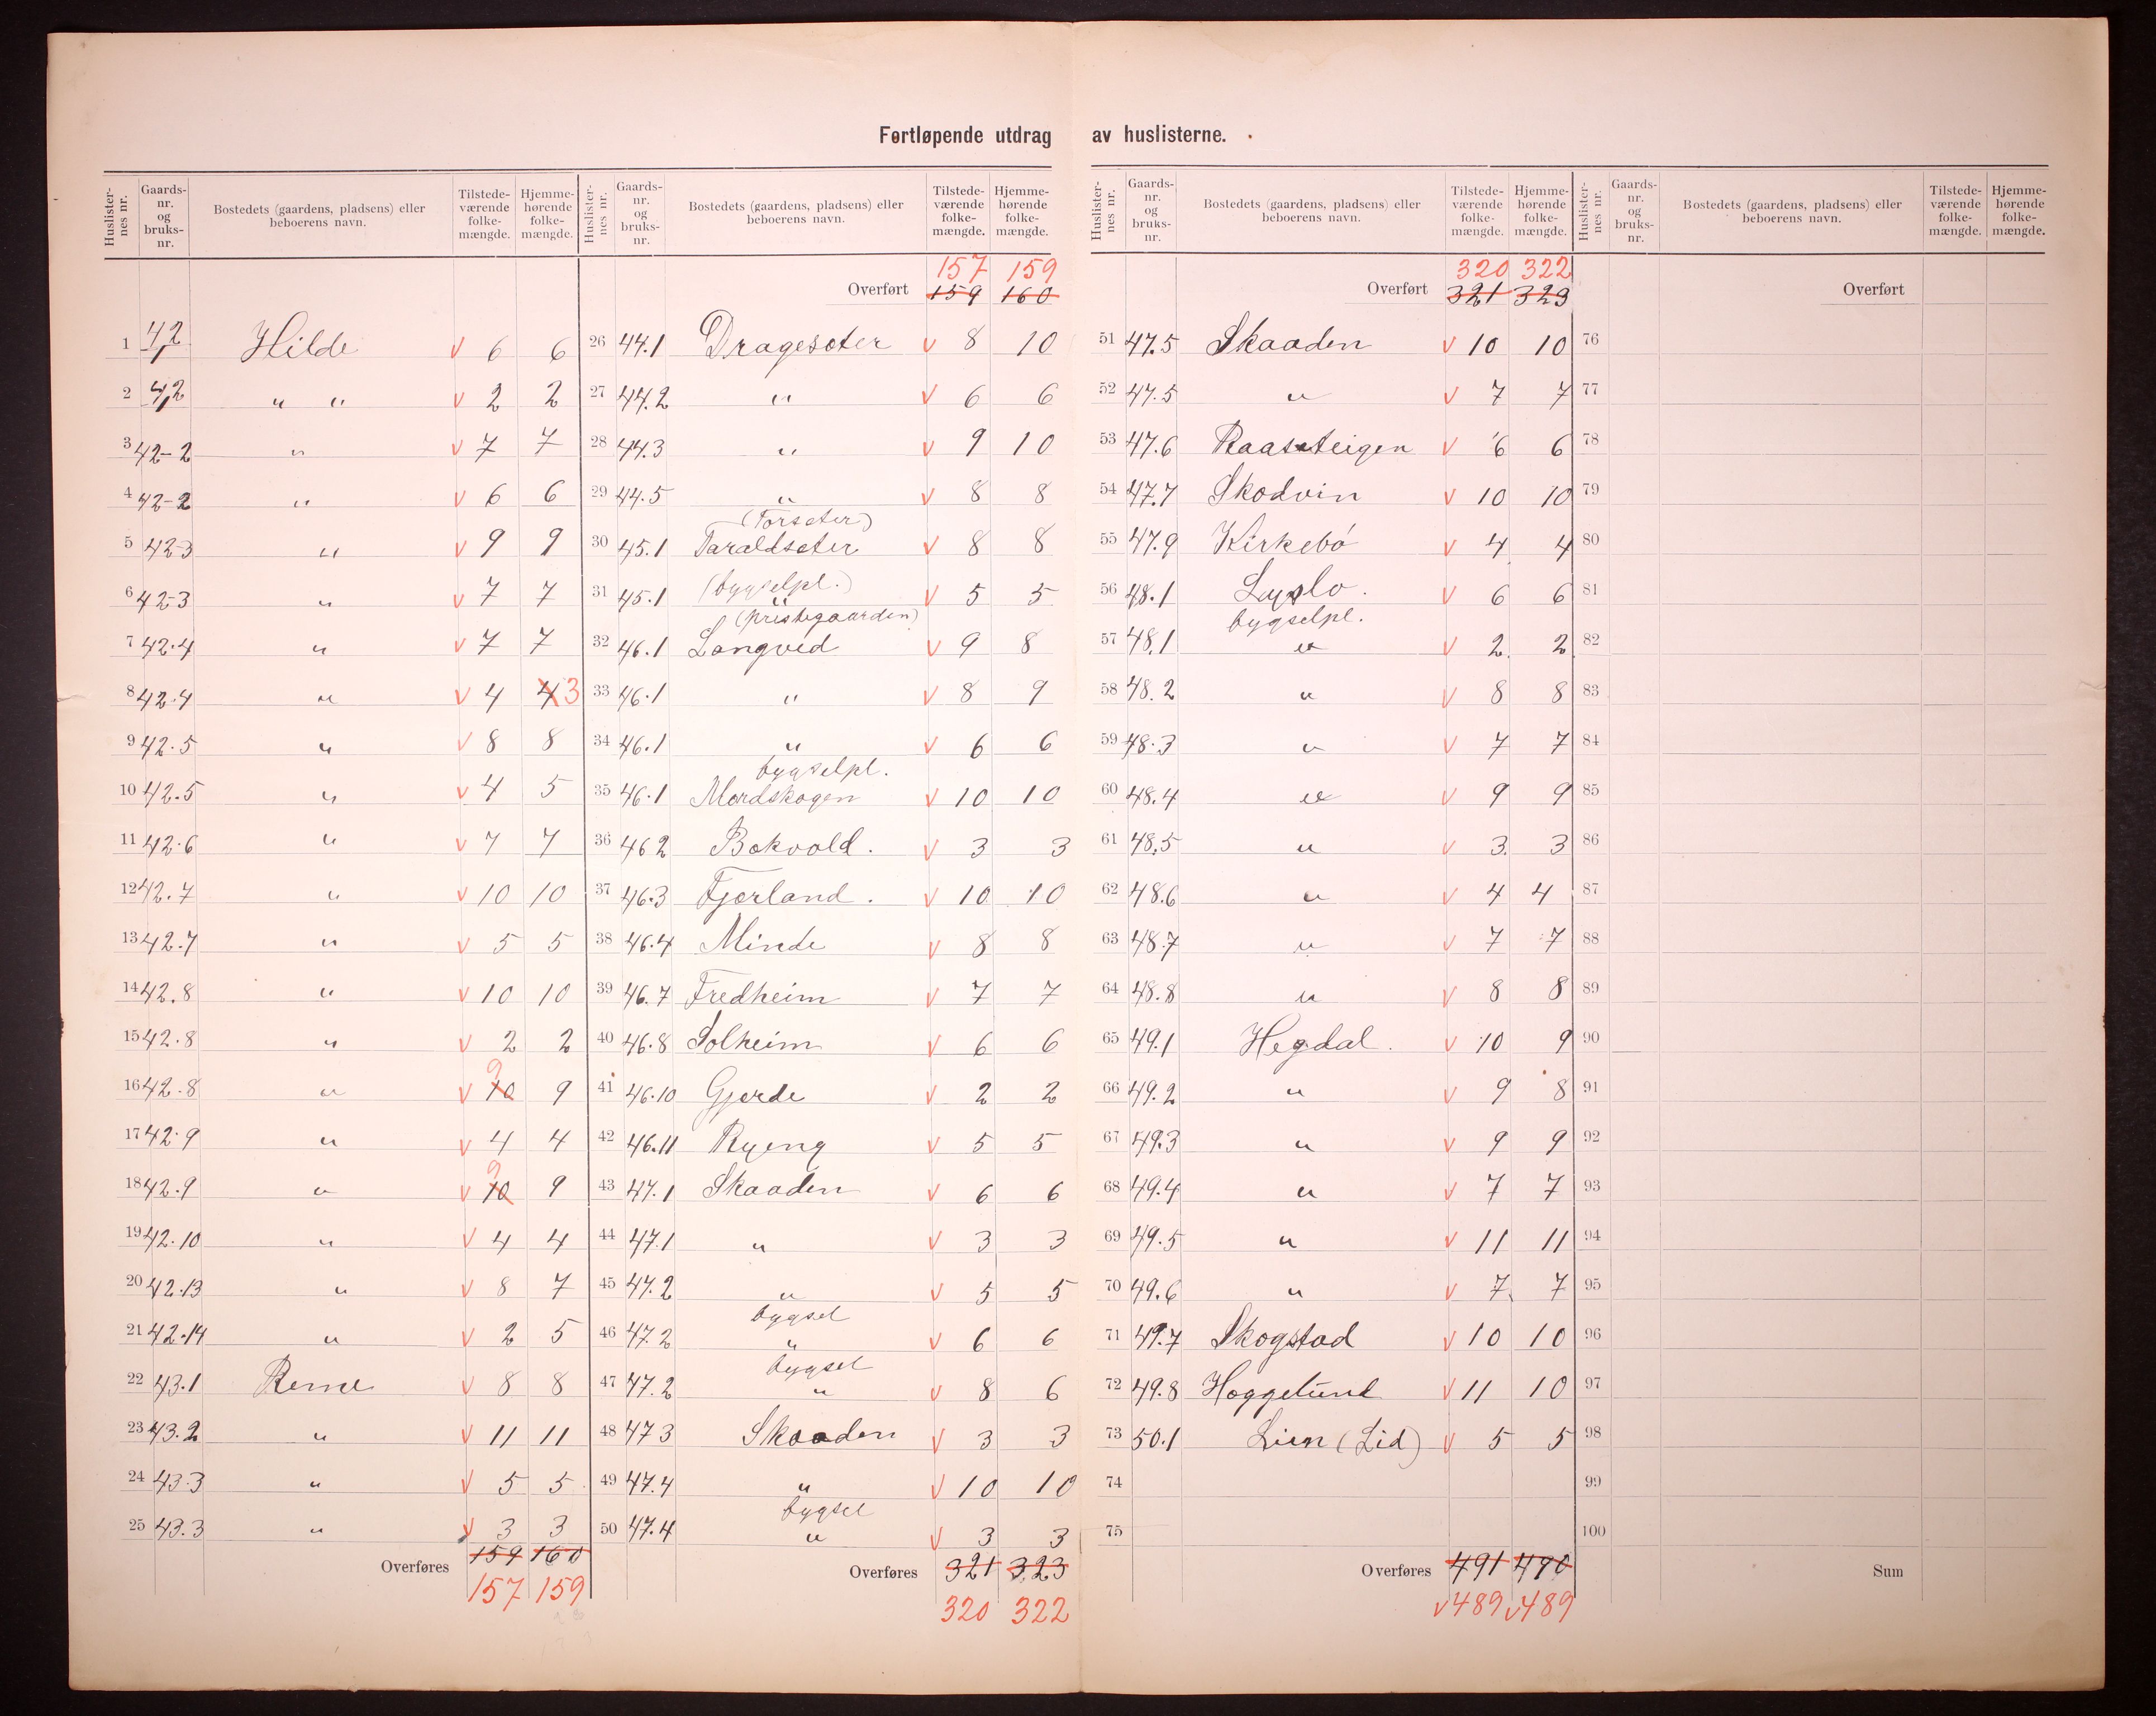 Fortløpende utdrag av huslisterne.
Huslisternes nr. Gaards-nr. og bruks-nr. Bostedets (gaardens, pladsens) eller beboerens navn. Tilstedeværende folkemængde. Hjemmehørende folkemængde.
1 42,2 Hilde v 6 6
2 42,2 " " v 2 2
3 42-2 " v 7 7
4 42-2 " v 6 6
5 42-3 " v 9 9
6 42-3 " v 7 7
7 42.4 " v 7 7
8 42.4 " v 4 4 3
9 42.5 " v 8 8
10 42.5 " v 4 5
11 42.6 " v 7 7
12 42.7 " v 10 10
13 42.7 " v 5 5
14 42.8 " v 10 10
15 42.8 " v 2 2
16 42.8 " v 10 9 9
17 42.9 " v 4 4
18 42.9 " v 10 9 9
19 42.10 " v 4 4
20 42.13 " v 8 7
21 42.14 " v 2 5
22 43.1 Renne v 8 8
23 43.2 " v 11 11
24 43.3 " v 5 5
25 43.3 " v 3 3
Overføres 159 160
157 159
Huslisternes nr. Gaards-nr. og bruks-nr. Bostedets (gaardens, pladsens) eller beboerens navn. Tilstedeværende folkemængde. Hjemmehørende folkemængde.
157 159
Overført 159 160
26 44.1 Dragesæter v 8 10
27 44.2 " v 6 6
28 44.3 " v 9 10
29 44.5 " v 8 8
(Torsæter)
30 45.1 Taraldsæter v 8 8
31 45.1 (bygselpl.) " v 5 5
(pristegaarden)
32 46.1 Longved v 9 8
33 46.1 " v 8 9
34 46.1 " v 6 6
bygselpl.
35 46.1 Mordskogen v 10 10
36 46 2 Bokvold. v 3 3
37 46.3 Fjærland. v 10 10
38 46.4 Minde v 8 8
39 46.7 Fredheim v 7 7
40 46.8 Solheim v 6 6
41 46.10 Gjerde v 2 2
42 46.11 Ryeng v 5 5
43 47.1 Skaaden v 6 6
44 47.1 " v 3 3
45 47.2 " v 5 5
bygsel
46 47.2 " v 6 6
bygsel
47 47.2 " v 8 6
48 47 3 Skaaden v 3 3
49 47.4 " v 10 10
bygsel
50 47.4 " v 3 3
Overføres 321 323
320 322
Huslisternes nr. Gaards-nr. og bruks-nr. Bostedets (gaardens, pladsens) eller beboerens navn. Tilstedeværende folkemængde. Hjemmehørende folkemængde.
320 322
Overført 321 323
51 47.5 Skaaden v 10 10
52 47.5 " v 7 7
53 47.6 Raasteigen v 6 6
54 47.7 Skodvin v 10 10
55 47.9 Kirkebö v 4 4
56 48.1 Lyslo. v 6 6
bygselpl.
57 48.1 " v 2 2
58 48.2 " v 8 8
59 48.3 " v 7 7
60 48.4 " v 9 9
61 48.5 " v 3 3
62 48.6 " v 4 4
63 48.7 " v 7 7
64 48.8 " v 8 8
65 49.1 Hegdal. v 10 9
66 49.2 " v 9 8
67 49.3 " v 9 9
68 49.4 " v 7 7
69 49.5 " v 11 11
70 49.6 " v 7 7
71 49.7 Skogstad v 10 10
72 49.8 Hoggelund v 11 10
73 50.1 Lien (Lid) v 5 5
74
75
Overføres 491 490
v489 v489
Huslisternes nr. Gaards-nr. og bruks-nr. Bostedets (gaardens, pladsens) eller beboerens navn. Tilstedeværende folkemængde. Hjemmehørende folkemængde.
Overført
76
77
78
79
80
81
82
83
84
85
86
87
88
89
90
91
92
93
94
95
96
97
98
99
100
Sum